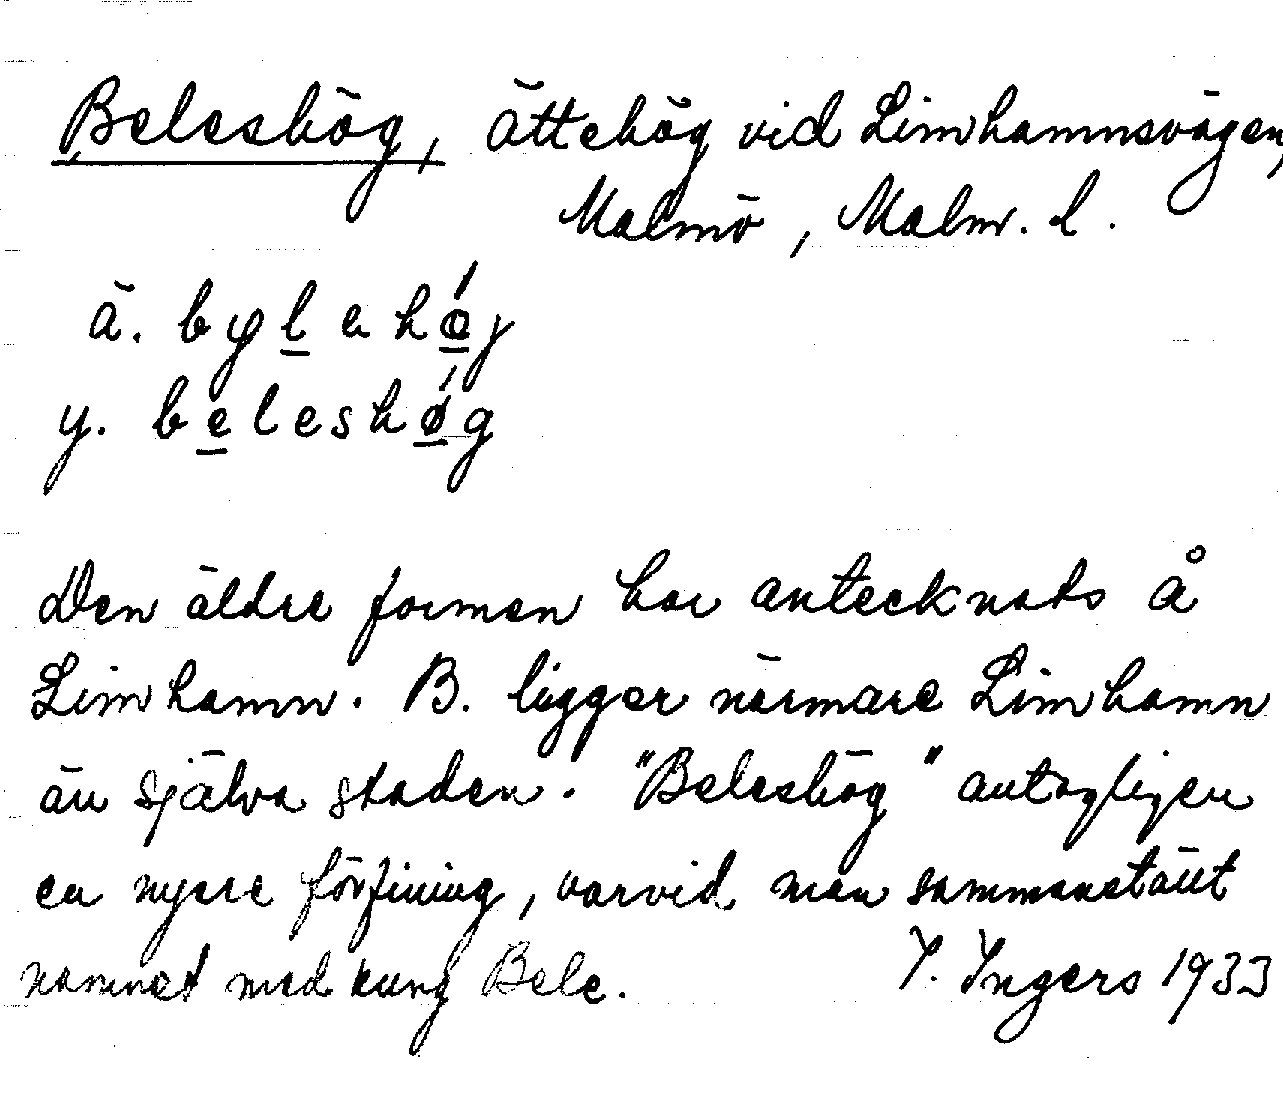 Beleshög, ättehög vid Limhamnsvägen,
Malmö, Malm. l.
ä. bylehǿj
y. beleshǿg
Den äldre formen har antecknats å
Limhamn. B. ligger närmare Limhamn
än själva staden. "Beleshög" antagligen
en nyere förfining, varvid man sammanställt
namnet med kung Bele. I. Ingers 1933